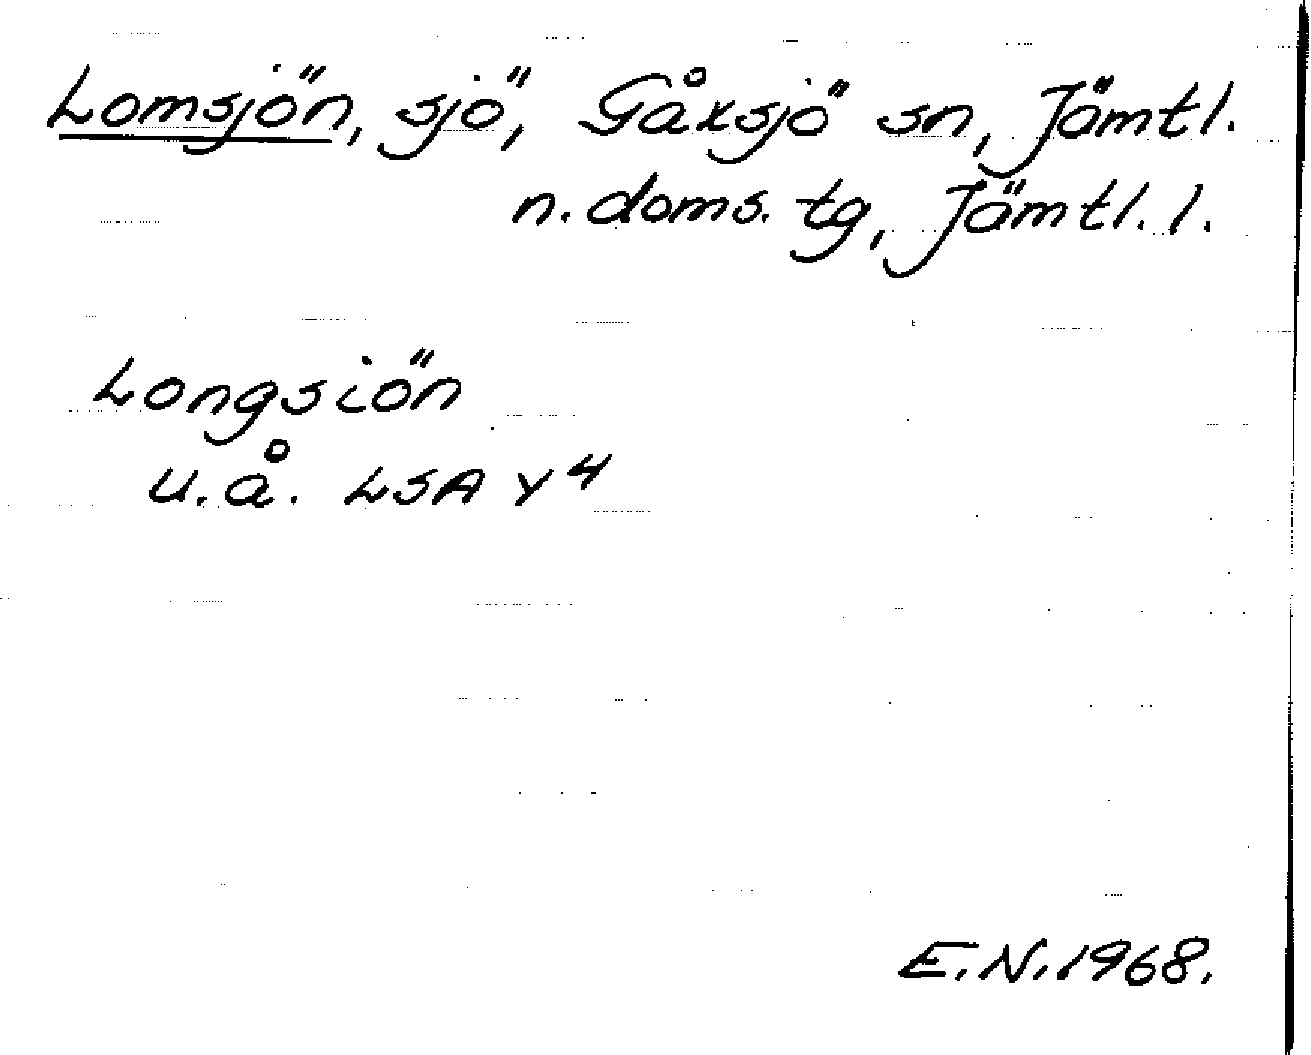 Lomsjön, sjö, Gåxsjö sn, Jämtl.
n. doms. tg, Jämtl. l.
Longsiön
u.å. LSA Y4
E.N. 1968.